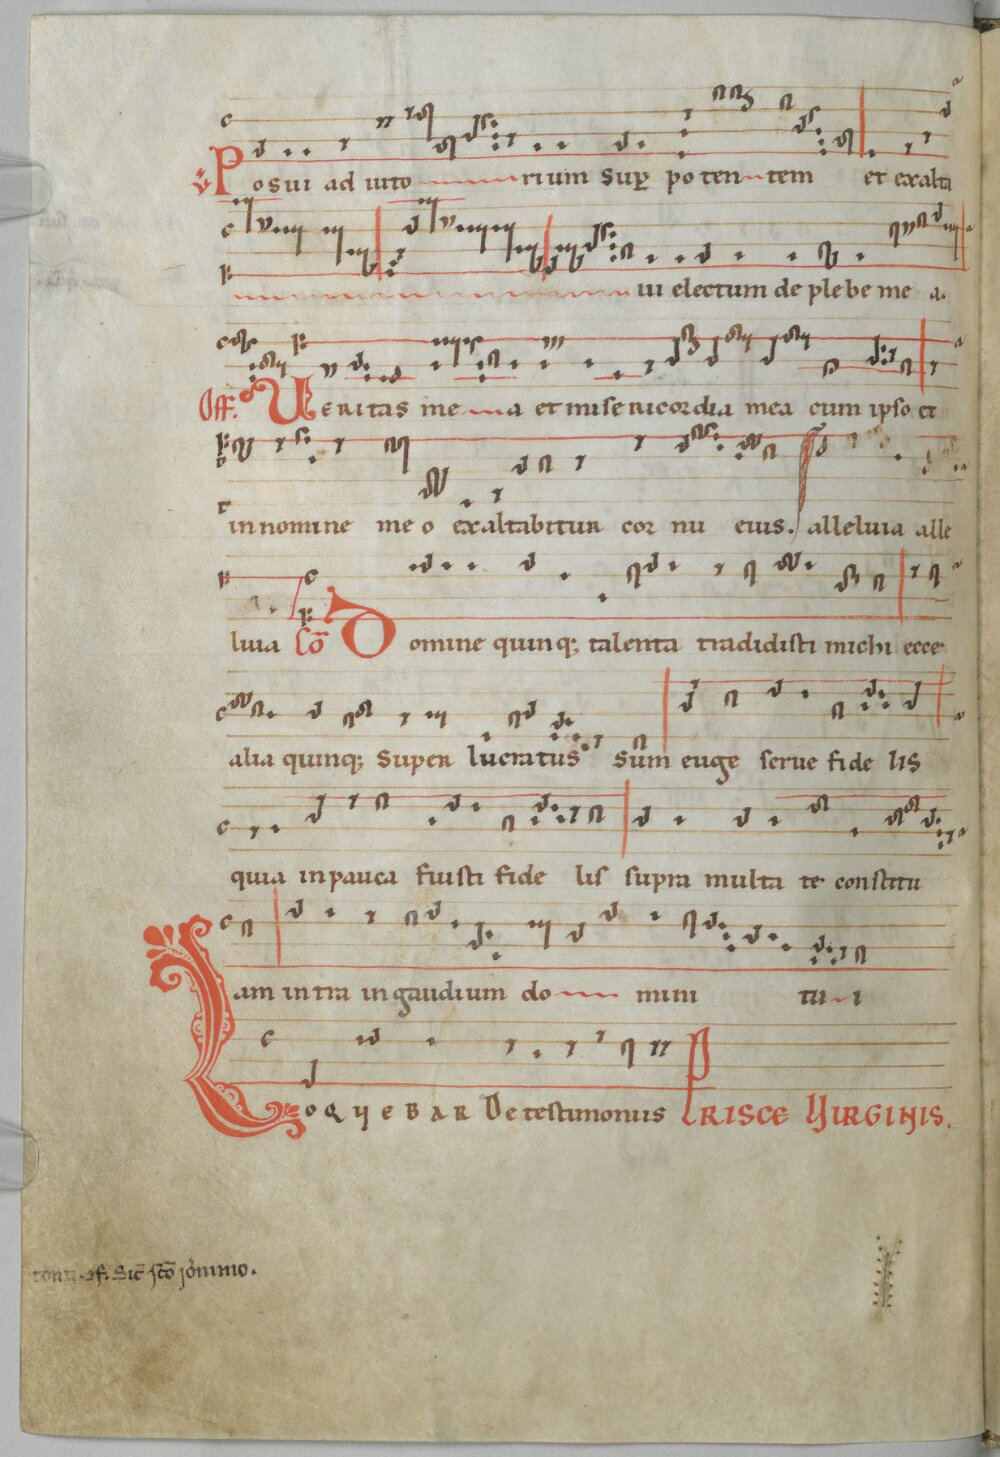 ℣ Posui adiuto rium sup potentem et exalta
ui electum de plebe me a.
Off. Ueritas me a et misericordia mea cum ipso et
in nomine meo exaltabitur cornu eius. alleluia alle
luia Cō Domine quinq; talenta tradidisti michi ecce
alia quinq; super lucratus sum euge serue fidelis
quia in pauca fuisti fidelis supra multa te constitu
am intra in gaudium do mini tu i
LOQUEBAR De testimoniis PRISCE UIRGINIS.